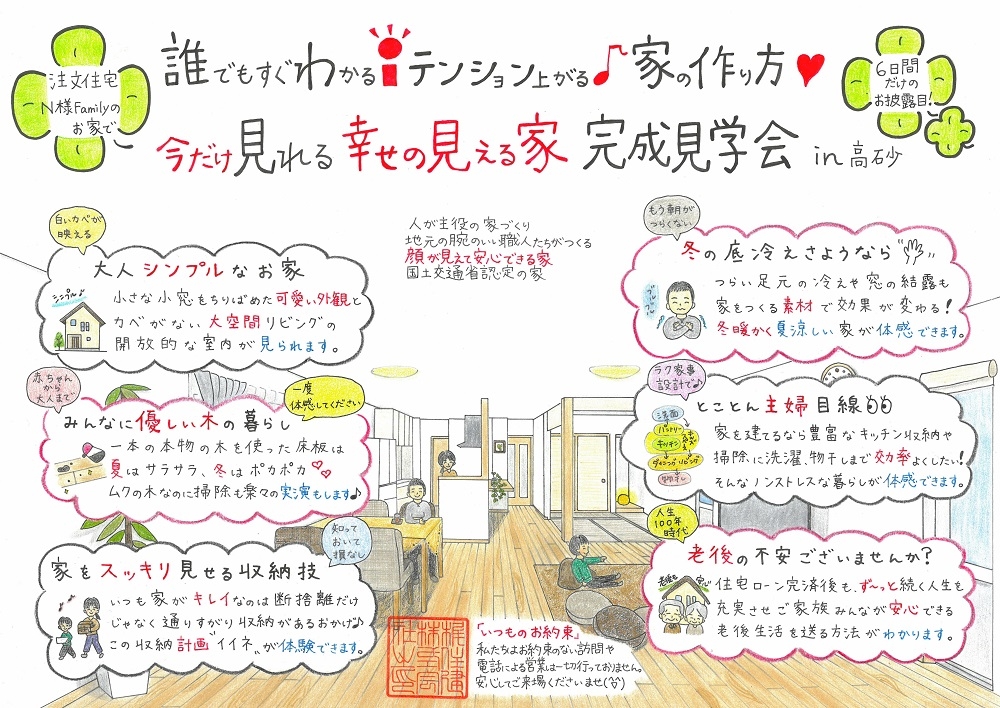 注文住宅
N様Familyの
お家で
誰でもすぐわかる!テンション上がる♪家の作り方♥
6日間
だけの
お披露目!
今だけ見れる 幸せの見える家 完成見学会 in 高砂
人が主役の家づくり
地元の腕のいい職人たちがつくる
顔が見えて安心できる家
国土交通省認定の家
白いカベが
映える
大人シンプルなお家
シンプル♪
小さな小窓をちりばめた可愛い外観と
カベがない大空間リビングの
開放的な室内が見られます。
赤ちゃん
から
大人まで
一度
体感してください
みんなに優しい木の暮らし
一本の本物の木を使った床板は
夏はサラサラ、冬はポカポカ
ムクの木なのに掃除も楽々の実演もします♪
知って
おいて
損なし
家をスッキリ見せる収納技
いつも家がキレイなのは断捨離だけ
じゃなく通りすがり収納があるおかげ♪
この収納計画"イイネ"が体験できます。
もう朝が
つらくない
冬の底冷えさようなら
ブルブル
つらい足元の冷えや窓の結露も
家をつくる素材で効果が変わる!
冬暖かく夏涼しい家が体感できます。
ラク家事
設計で♪
とことん主婦目線
洗面
パントリー
キッチン
ダイニング リビング
物干し
家を建てるなら豊富なキッチン収納や
掃除に洗濯、物干しまで効率よくしたい!
そんなノンストレスな暮らしが体感できます。
人生
100年
時代
老後の不安ございませんか?
老後も
安心
住宅ローン完済後も、ず〜っと続く人生を
充実させご家族みんなが安心できる
老後生活を送る方法がわかります。
「いつものお約束」
私たちはお約束のない訪問や
電話による営業は一切行っておりません。
安心してご来場くださいませ(^^)